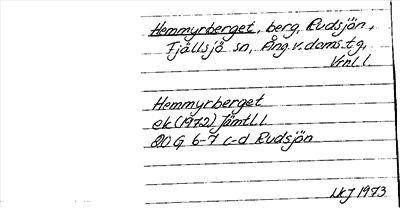 Hemmyrberget, berg, Rudsjön,
Fjällsjö sn, Ång.v.doms.tg,
Vrnl.l.
Hemmyrberget
ek (1972) Jämtl.l.
20 G 6-7 c-d Rudsjön
1973